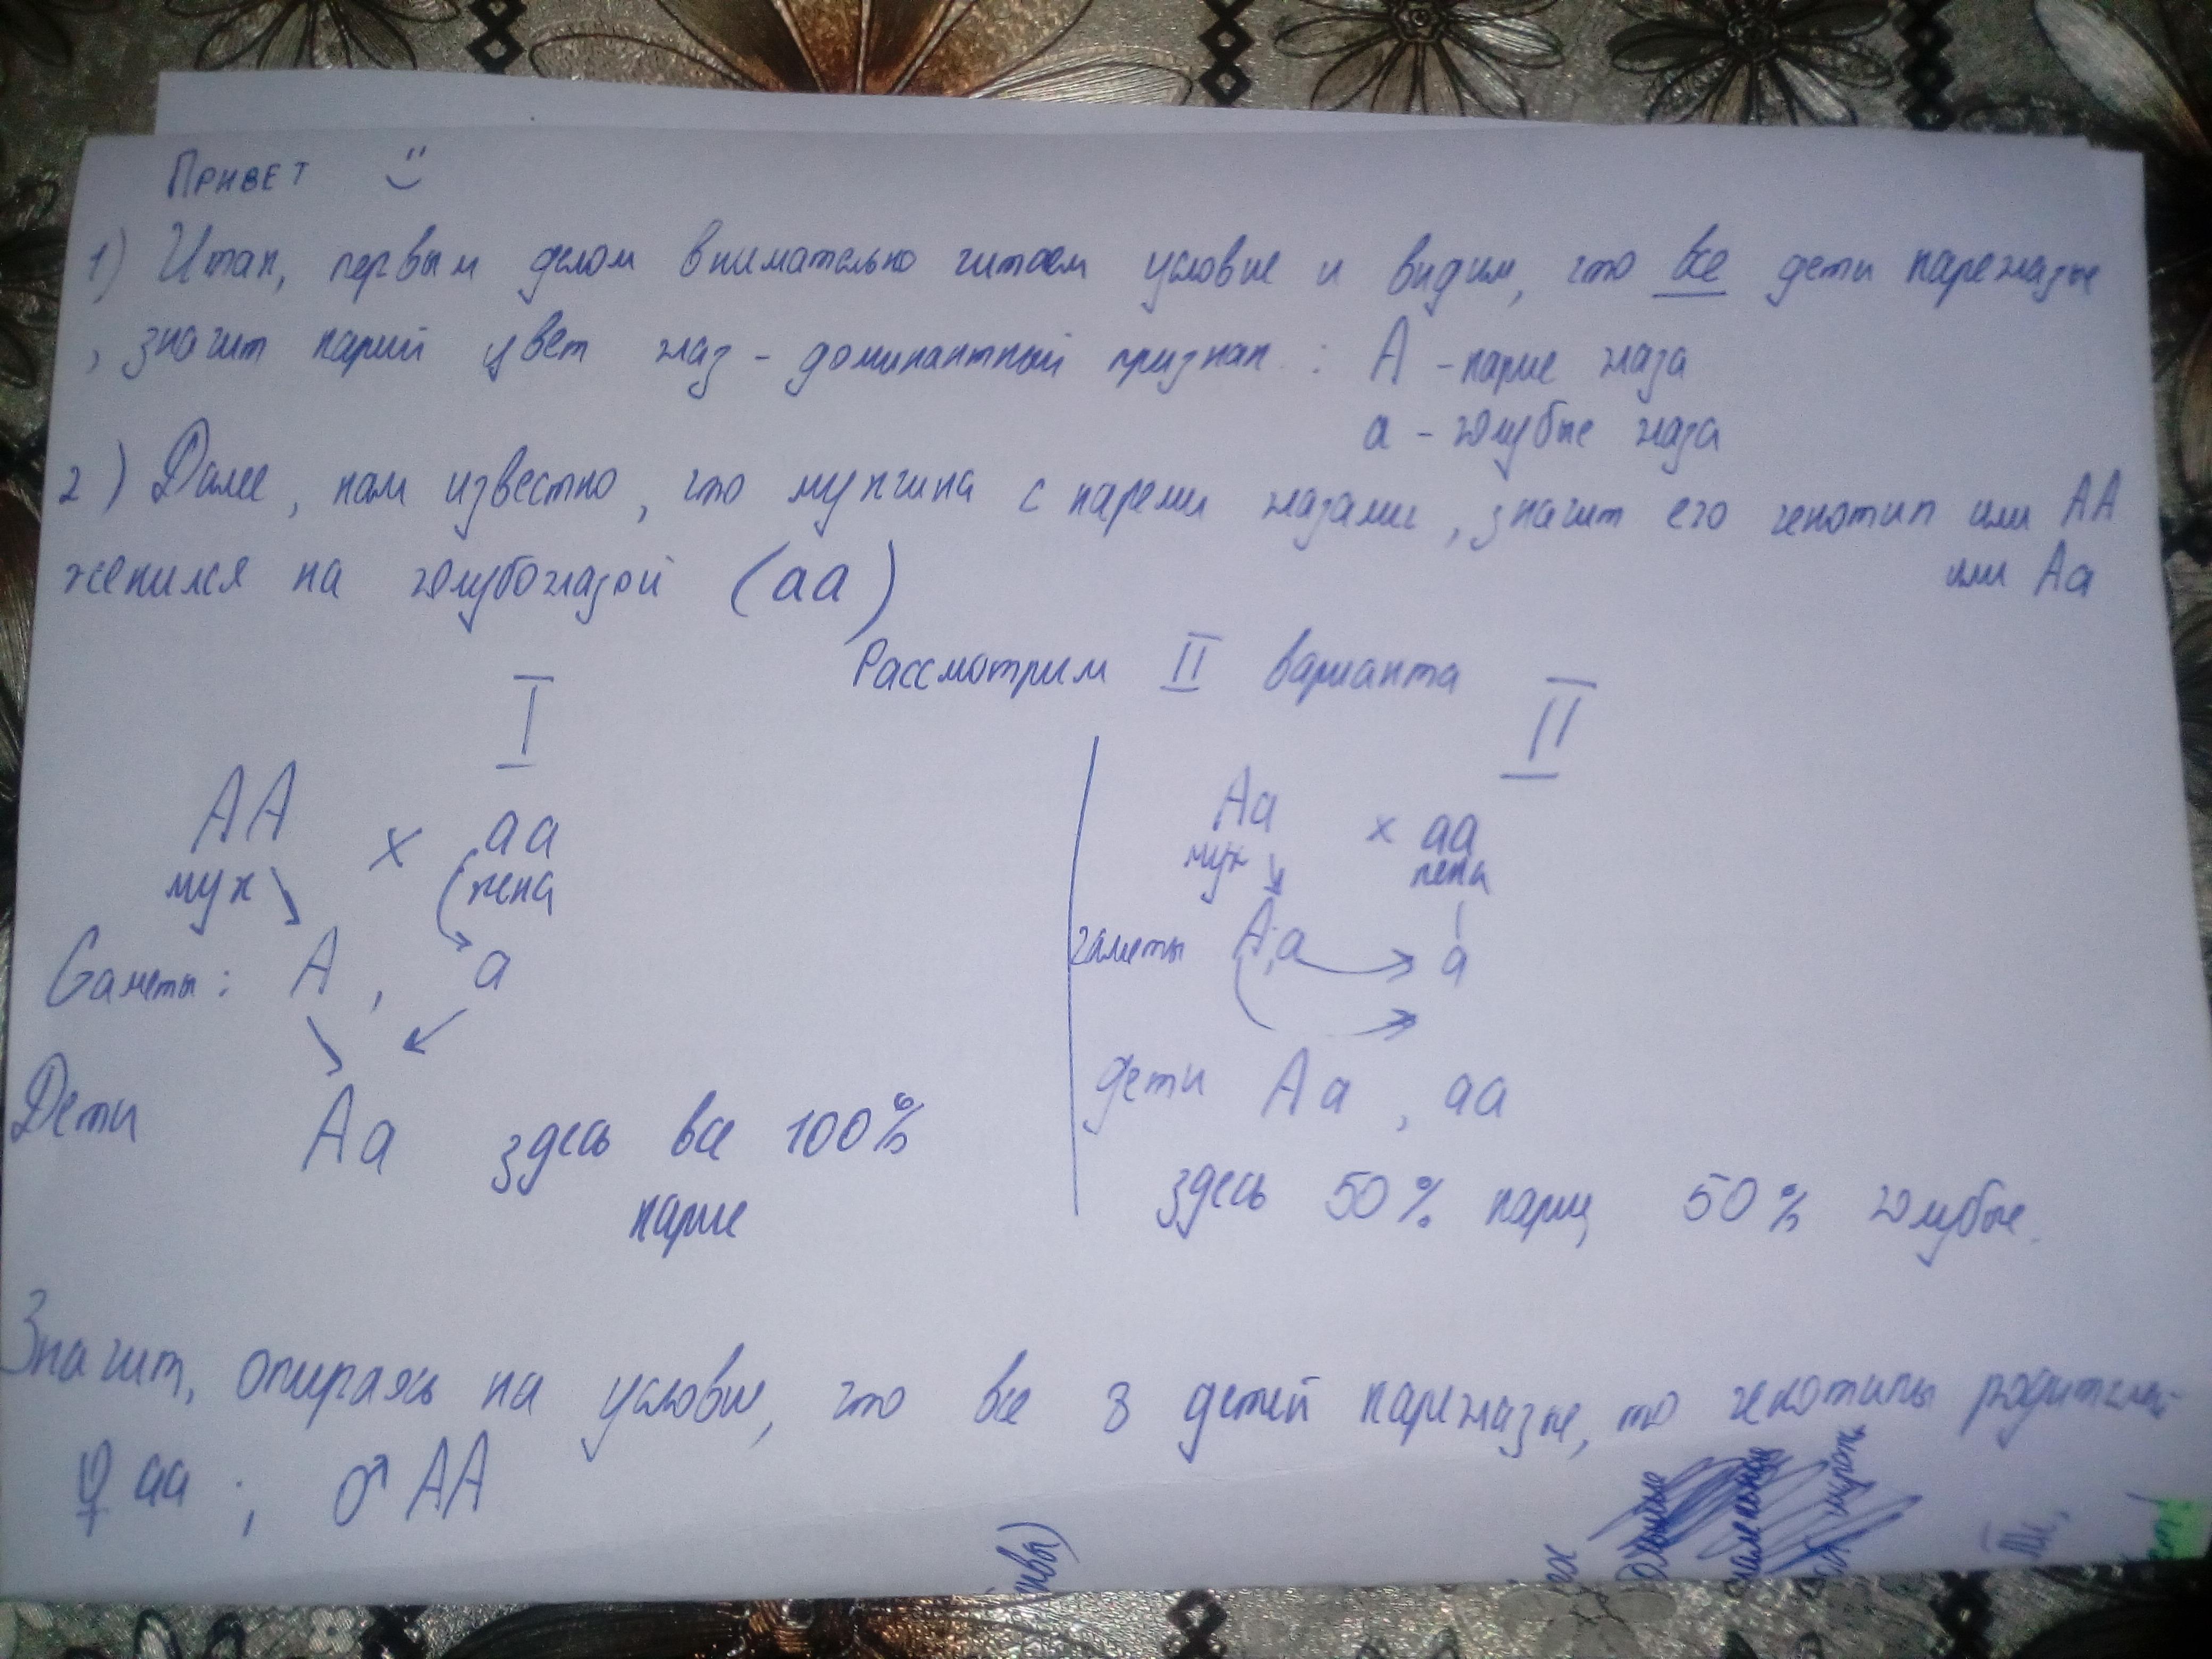 Привет
1) Итак, первым делом внимательно читаем условие и видим, что все дети кареглазые
, значит карий цвет глаз - доминантный признак : А - карие глаза
а - голубые глаза
2) Далее, нам известно, что мужчина с карими глазами, значит его генотип или АА
женился на голубоглазой (аа) или Аа
Рассмотрим II варианта
I
II
АА х аа
муж жена
Гаметы: А, а
Дети Аа здесь все 100%
карие
Аа х аа
муж жена
гаметы А, а а
дети Аа, аа
здесь 50% карие, 50% голубые.
Значит, опираясь на условие, что все 8 детей кареглазые, то генотипы родителей
♀ аа ; ♂ АА